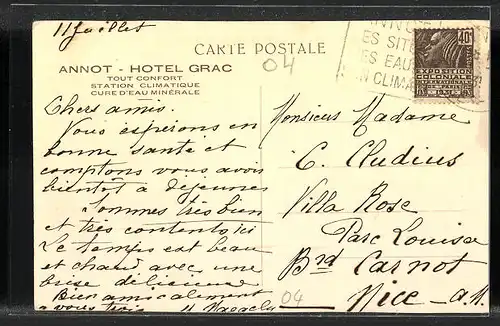 11 Juillet
CARTE POSTALE
04
ANNOT - HOTEL GRAC
TOUT CONFORT
STATION CLIMATIQUE
CURE D'EAU MINÉRALE
Chers amis.
Vous espérons en
bonne santé et
comptons vous avoir
bientôt à déjeuner
Sommes très bien
et très contents ici
Le temps est beau
et chaud avec une
brise délicieuse
Bien amicalement
à vous trois
ES SITE
ES EAU
N CLIMA
40c
EXPOSITION
COLONIALE
INTERNATIONALE
PARIS 1931
Monsieur Madame
C. Cludius
Villa Rose
Parc Louisa
Brd Carnot
Nice A.M.
04